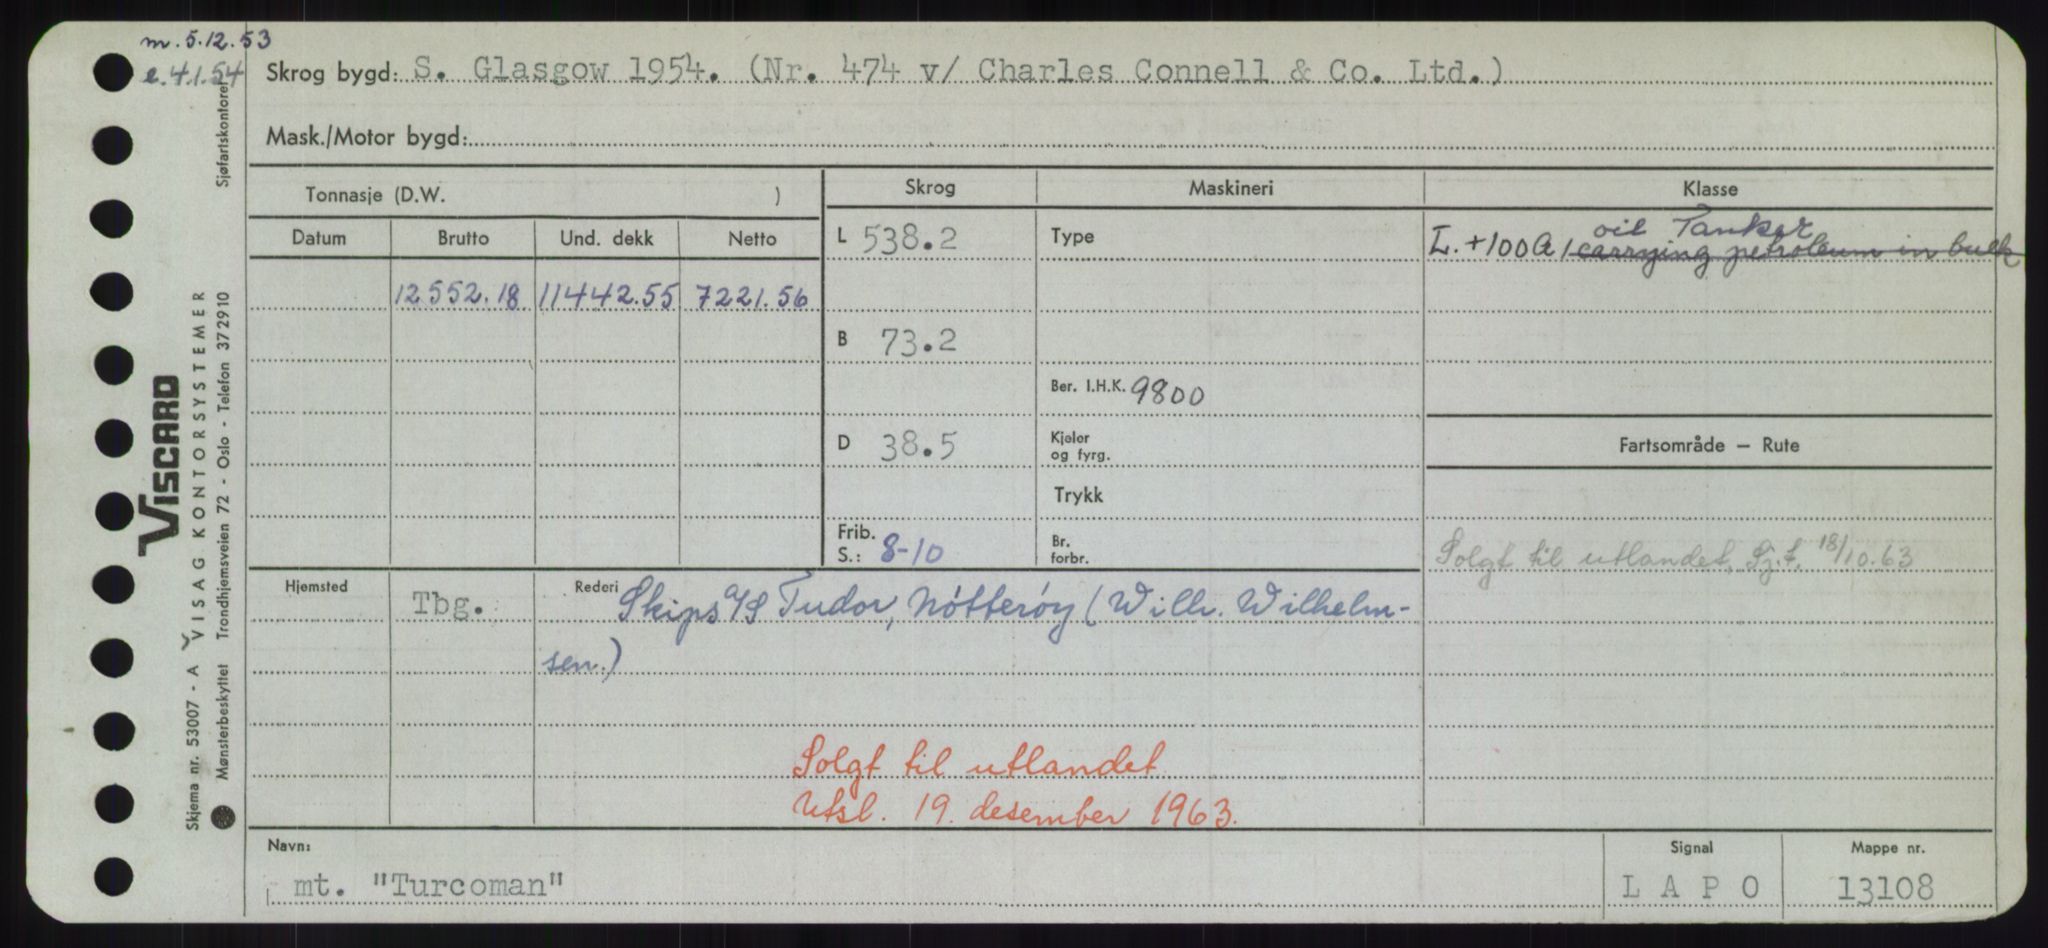 m. 5.12.53
e. 4.1.54
Skrog bygd: S. Glasgow 1954. (Nr. 474 v/ Charles Connell & Co. Ltd.)
Mask./Motor bygd:
Tonnasje (D.W. )
Skrog
Maskineri
Klasse
Datum
Brutto
Und. dekk
Netto
L 538.2
Type
oil Tanker
L. +100A1 carrying petroleum in bulk
12552.18 11442.55 7221.56
B 73.2
Ber. I.H.K. 9800
D 38.5
Kjeler
og fyrg.
Fartsområde — Rute
Trykk
Frib.
S.: 8-10
Br.
forbr.
Solgt til utlandet, Sj.t. 18/10.63
Hjemsted
Tbg.
Rederi Skips A/S Tudor, Nötteröy (Wilh. Wilhelm-
sen.)
Solgt til utlandet.
Utsl. 19. desember 1963.
Navn:
mt. "Turcoman"
Signal
L A P O
Mappe nr.
13108
Sjøfartskontoret
VISCARD
VISAG KONTORSYSTEMER
Trondhjemsveien 72 - Oslo - Telefon 372910
Skjema nr. 53007 - A
Mønsterbeskyttet